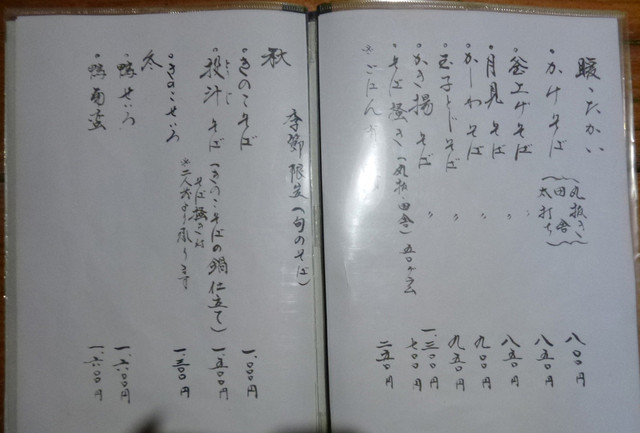 暖ったかい
・かけそば 八〇〇円
(丸抜き)
(田舎)
(太打ち)
・釜上げそば 八五〇円
・月見そば 〃 八五〇円
・かしわそば 〃 九〇〇円
・玉子とじそば 〃 九五〇円
・かき揚そば 〃 一、三〇〇円
・そば掻き(丸抜・田舎)五〇ヶ 七〇〇円
※ごはん 二五〇円
季節限定(旬のそば)
秋
・きのこそば 一、〇〇〇円
・投汁そば(きのこそばの鍋仕立て) 一、五〇〇円
とうじ
そば掻き
※二人前より承ります
・きのこせいろ 一、三〇〇円
冬
・鴨せいろ 一、六〇〇円
・鴨南蛮 一、六〇〇円